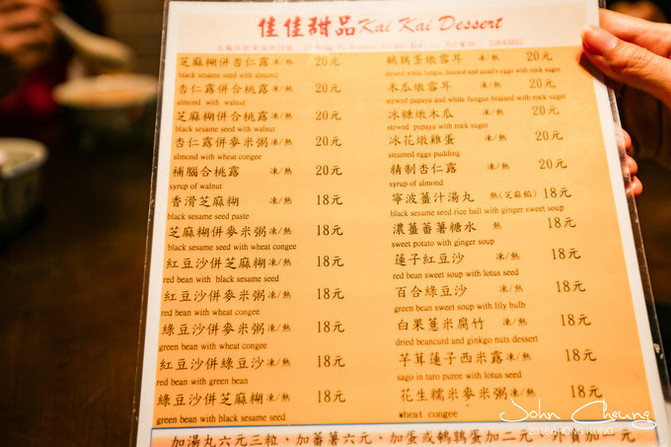 佳佳甜品 Kai Kai Dessert
芝麻糊併杏仁露 凍/熱 20元
black sesame seed with almond
杏仁露併合桃露 凍/熱 20元
almond with walnut
芝麻糊併合桃露 凍/熱 20元
black sesame seed with walnut
杏仁露併麥米粥 凍/熱 20元
almond with wheat congee
補腦合桃露 凍/熱 20元
syrup of walnut
香滑芝麻糊 凍/熱 18元
black sesame seed paste
芝麻糊併麥米粥 凍/熱 18元
black sesame seed with wheat congee
紅豆沙併芝麻糊 凍/熱 18元
red bean with black sesame seed
紅豆沙併麥米粥 凍/熱 18元
red bean with wheat congee
綠豆沙併麥米粥 凍/熱 18元
green bean with wheat congee
紅豆沙併綠豆沙 凍/熱 18元
red bean with green bean
綠豆沙併芝麻糊 凍/熱 18元
green bean with black sesame seed
鵪鶉蛋燉雪耳 凍/熱 20元
stewed white fungus braised and quail's eggs with rock suger
木瓜燉雪耳 凍/熱 20元
stewed papaya and white fungus braised with rock suger
冰糖燉木瓜 凍/熱 20元
stewed papaya with rock suger
冰花燉雞蛋 凍/熱 20元
steamed eggs pudding
精制杏仁露 凍/熱 20元
syrup of almond
寧波薑汁湯丸 熱(芝麻餡) 18元
black sesame seed rice ball with ginger sweet soup
濃薑蕃薯糖水 熱 18元
sweet potato with ginger soup
蓮子紅豆沙 凍/熱 18元
red bean sweet soup with lotus seed
百合綠豆沙 凍/熱 18元
green bean sweet soup with lily bulb
白果薏米腐竹 凍/熱 18元
dried beancurd and ginkgo nuts dessert
芋茸蓮子西米露 凍/熱 18元
sago in taro puree with lotus seed
花生糯米麥米粥 凍/熱 18元
wheat congee
加湯丸六元三粒、加蕃薯六元、加蛋或鵪鶉蛋加二元、外賣加一元
John Cheung
2016 HONG KONG